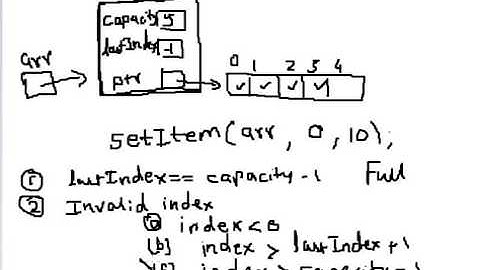 capacity 5
lastIndex -1
arr
ptr
0 1 2 3 4
setItem(arr, 0, 10);
① lastIndex == capacity - 1 Full
② Invalid index
ⓐ index < 0
(b) index > lastIndex + 1
(c) index > capacity - 1